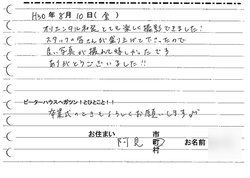 H30年 8月 10日(金)
オリエンタル和装 とても楽しく撮影できました!
スタッフの皆さんが盛り上げて下さったので
良い写真が撮れて嬉しかったです
ありがとうございました!!
ピーターハウスへガツン!とひとこと!!
卒業式のときもよろしくお願いします
お住まい 市
阿見 町
村
お名前